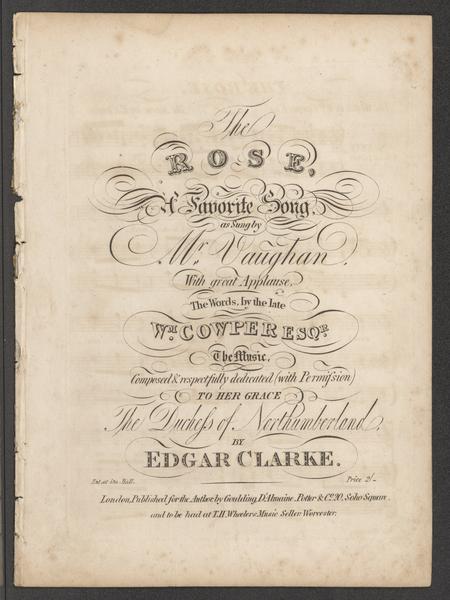 The
ROSE,
A Favorite Song,
as Sung by
Mr. Vaughan,
With great Applause,
The Words, by the late
Wm. COWPER ESQR.
The Music,
Composed & respectfully dedicated (with Permiſsion)
TO HER GRACE
The Ducheſs of Northumberland,
BY
EDGAR CLARKE.
Ent. at Sta. Hall. Price 2/-
London, Published for the Author by Goulding, D'Almaine, Potter & Co. 20, Soho Square,
and to be had at T.H. Wheelers Music Seller Worcester.